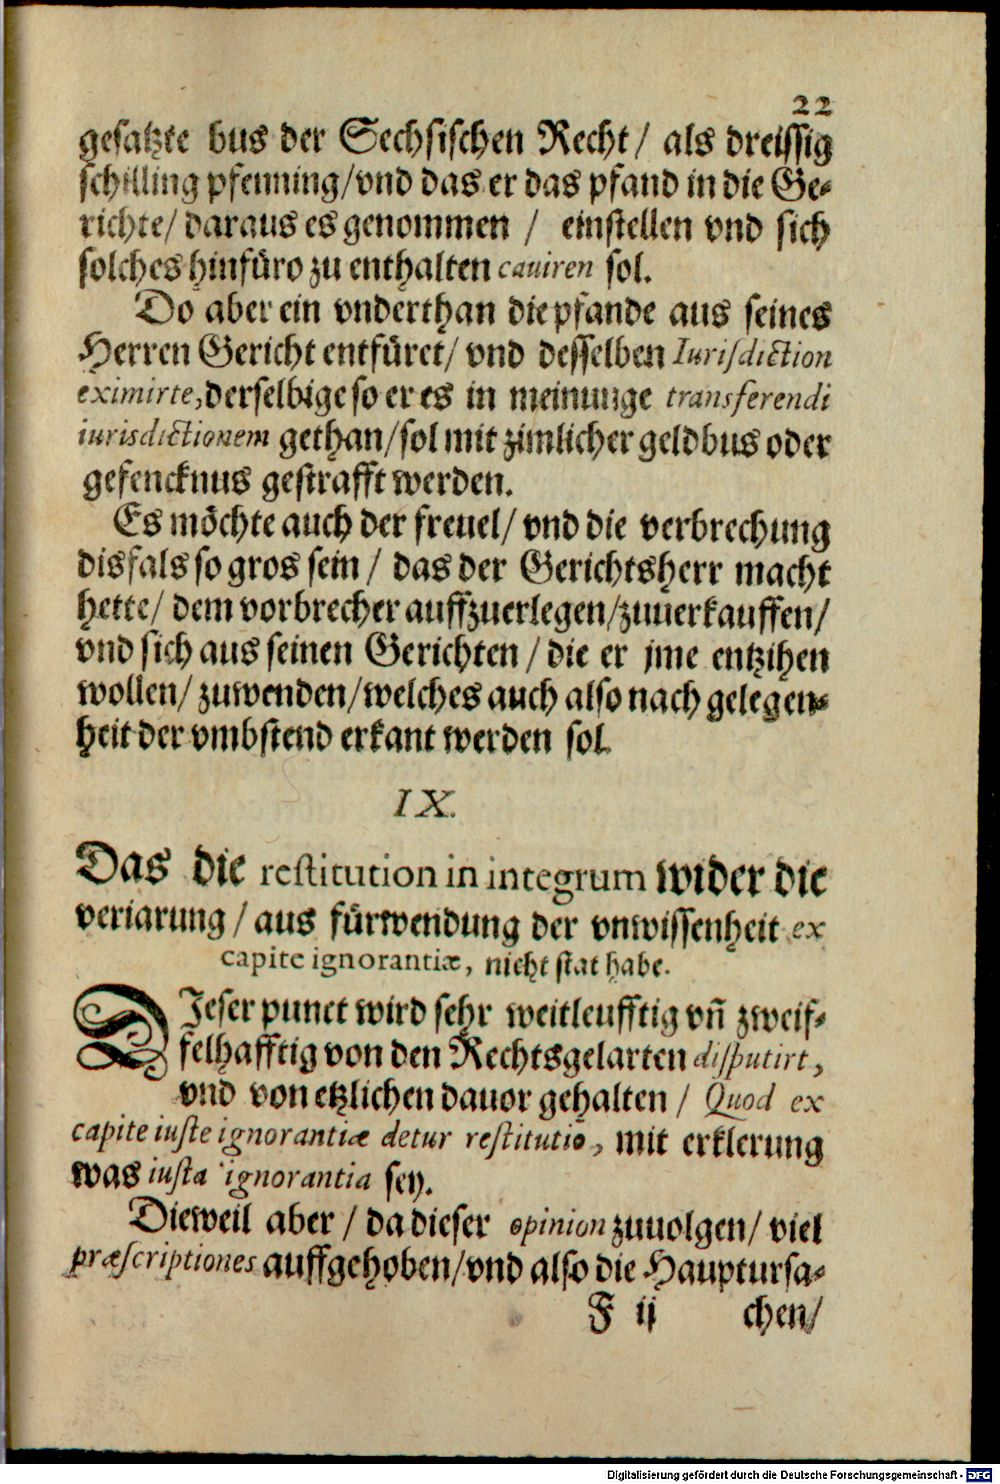 22
gesatzte bus der Sechsischen Recht/ als dreissig
schilling pfenning/vnd das er das pfand in die Ge-
richte/ daraus es genommen / einstellen vnd sich
solches hinfüro zu enthalten caviren sol.
Do aber ein vnderthan die pfande aus seines
Herren Gericht entfüret/ vnd desselben Iurisdiction
eximirte, derselbige so er es in meinunge transferendi
iurisdictionem gethan/sol mit zimlicher geldbus oder
gefencknus gestrafft werden.
Es möchte auch der freuel/ vnd die verbrechung
disfals so gros sein / das der Gerichtsherr macht
hette/ dem vorbrecher auffzuerlegen/zuuerkauffen/
vnd sich aus seinen Gerichten / die er jme entzihen
wollen/ zuwenden/welches auch also nach gelegen-
heit der vmbstend erkant werden sol.
IX.
Das die restitution in integrum wider die
veriarung / aus fürwendung der vnwissenheit ex
capite ignorantiæ, nicht stat habe.
DIeser punct wird sehr weitleufftig vn̄ zweif-
felhafftig von den Rechtsgelarten disputirt,
vnd von etzlichen dauor gehalten / Quod ex
capite iuste ignorantiæ detur restitutio, mit erklerung
was iusta ignorantia sey.
Dieweil aber / da dieser opinion zuuolgen/ viel
præscriptiones auffgehoben/vnd also die Hauptursa-
F ij chen/
Digitalisierung gefördert durch die Deutsche Forschungsgemeinschaft - DFG